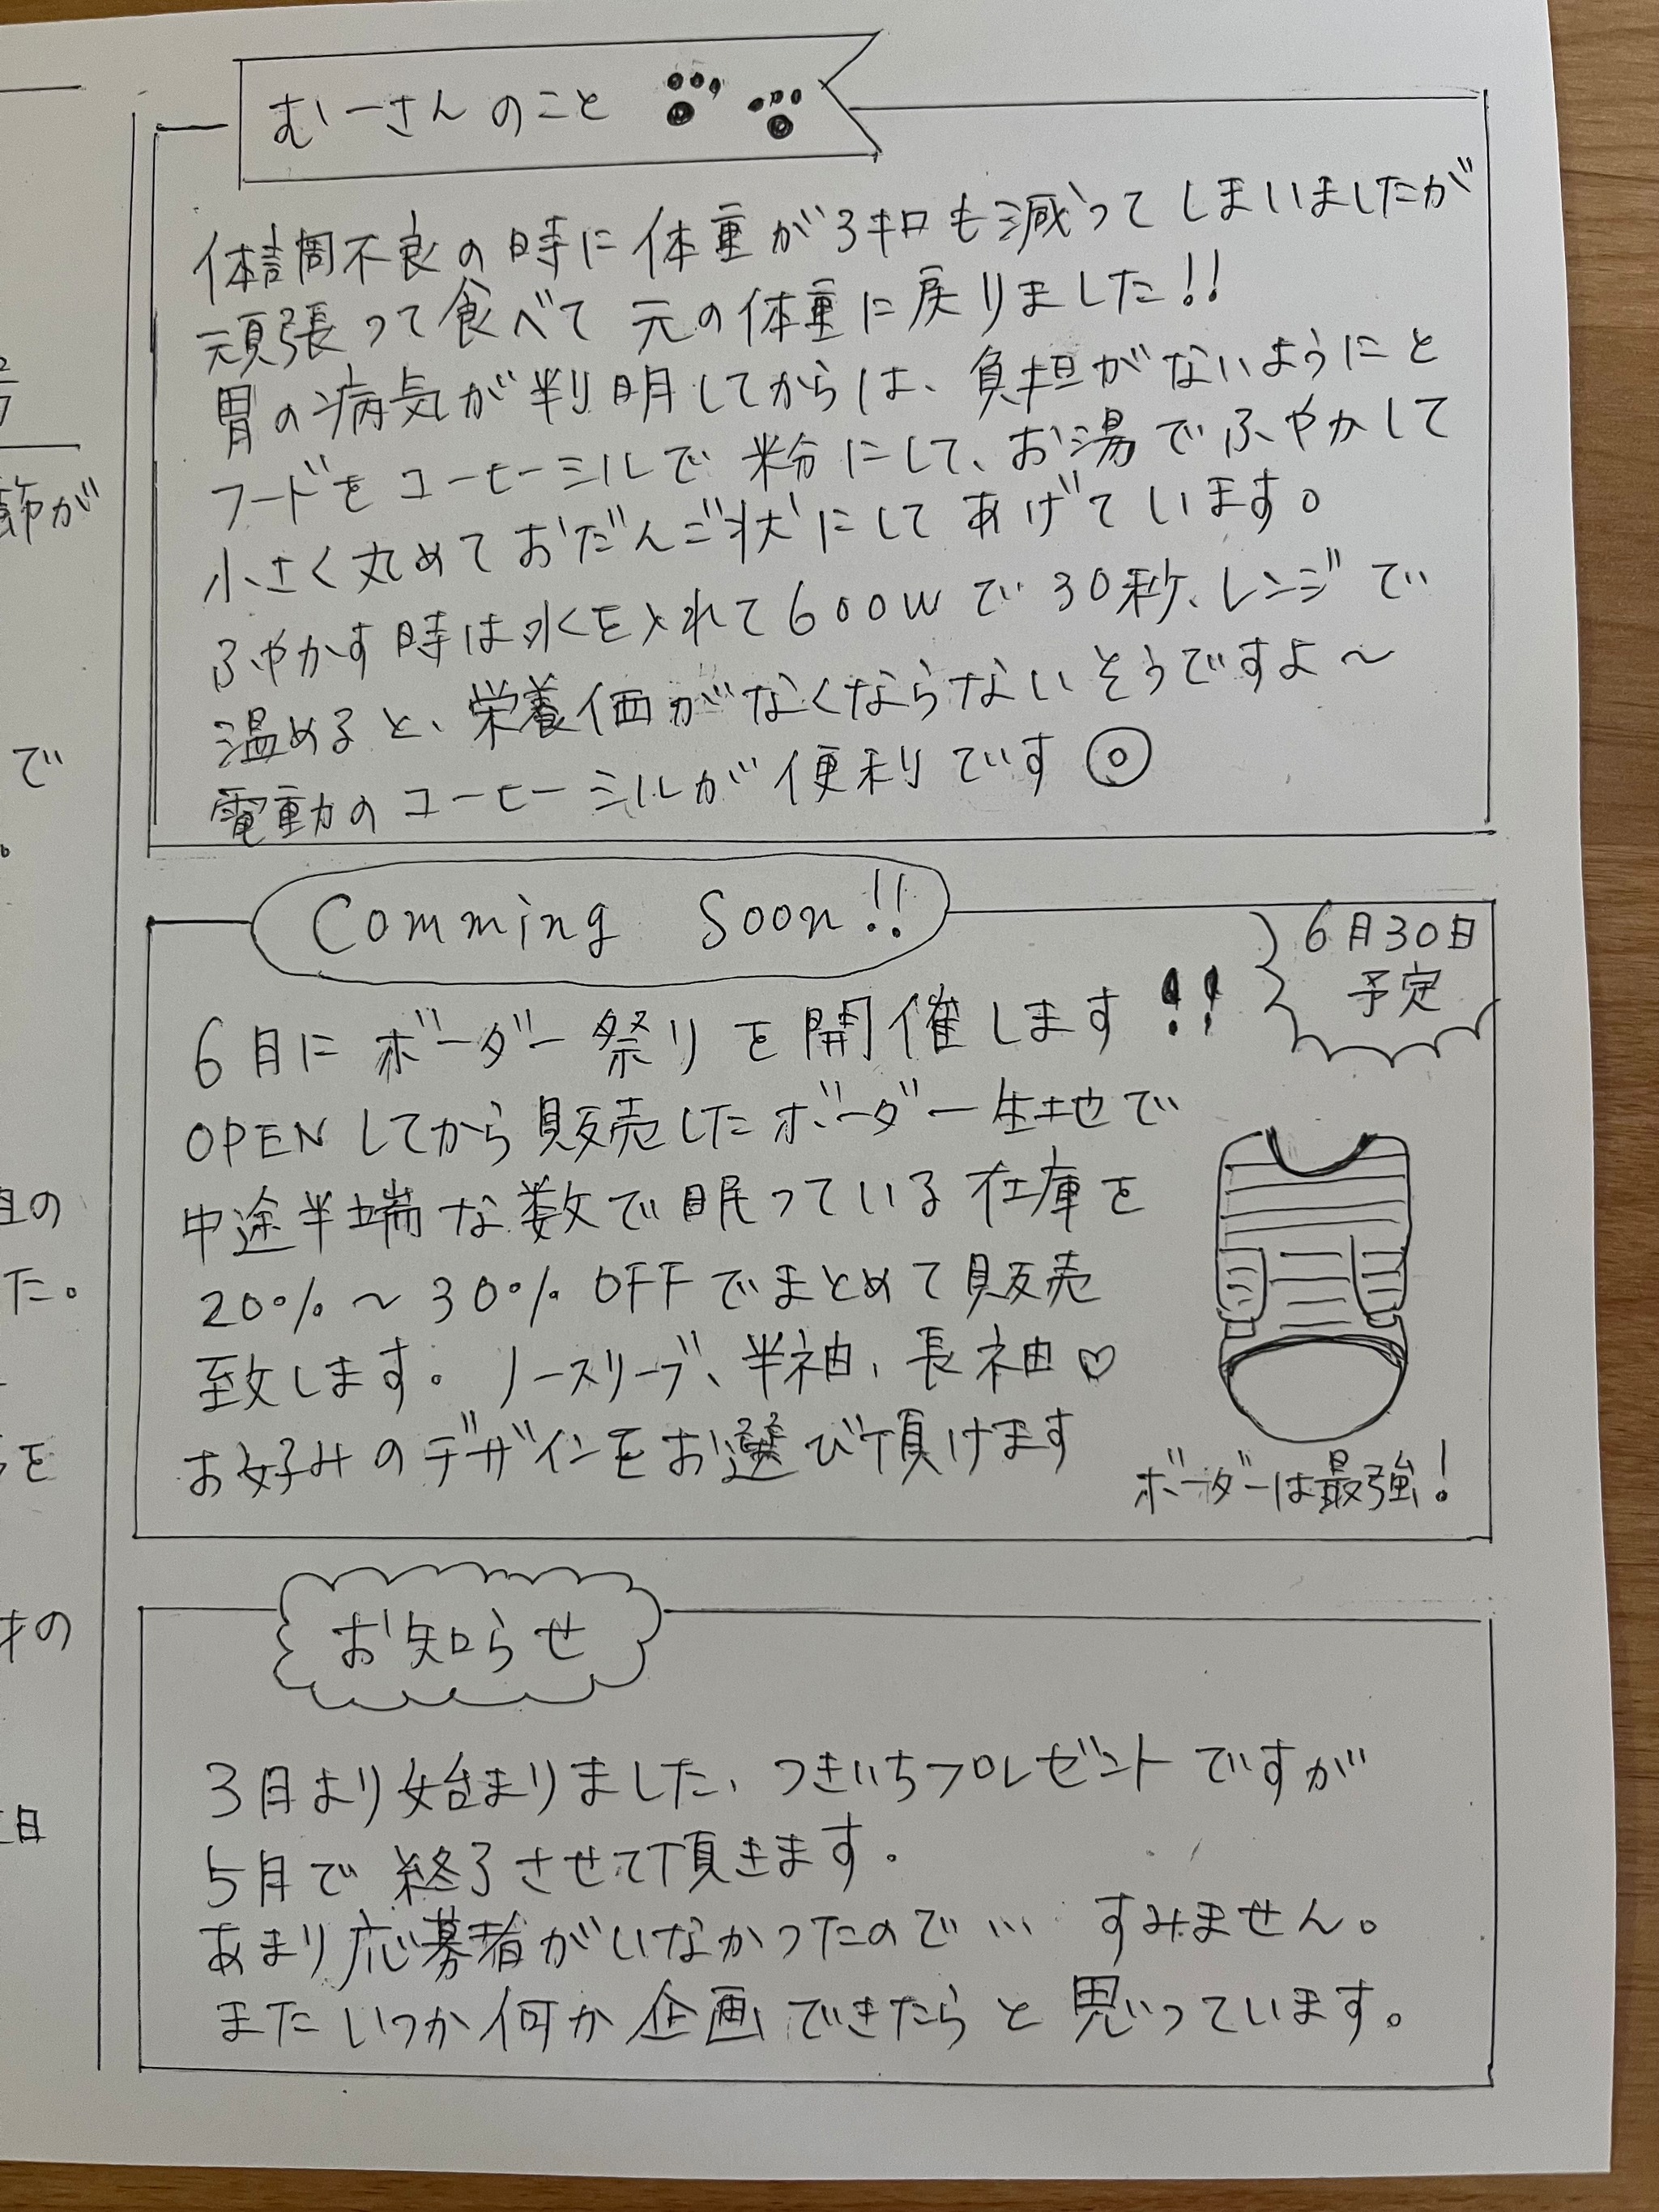 むーさんのこと
体調不良の時に体重が3キロも減ってしまいましたが
頑張って食べて元の体重に戻りました!!
胃の病気が判明してからは、負担がないようにと
フードをコーヒーミルで粉にして、お湯でふやかして
小さく丸めておだんご状にしてあげています。
ふやかす時は水を入れて600Wで30秒、レンジで
温めると、栄養価がなくならないそうですよ〜
電動のコーヒーミルが便利です◎
Comming Soon!!
6月30日
予定
6月にボーダー祭りを開催します!!
OPENしてから販売したボーダー生地で
中途半端な数で眠っている在庫を
20%〜30%OFFでまとめて販売
致します。ノースリーブ、半袖、長袖♡
お好みのデザインをお選び頂けます
ボーダーは最強!
お知らせ
3月より始まりました、つきいちプレゼントですが
5月で終了させて頂きます。
あまり応募者がいなかったので… すみません。
またいつか何か企画できたらと思っています。
節が
で
の
た。
を
オの
日